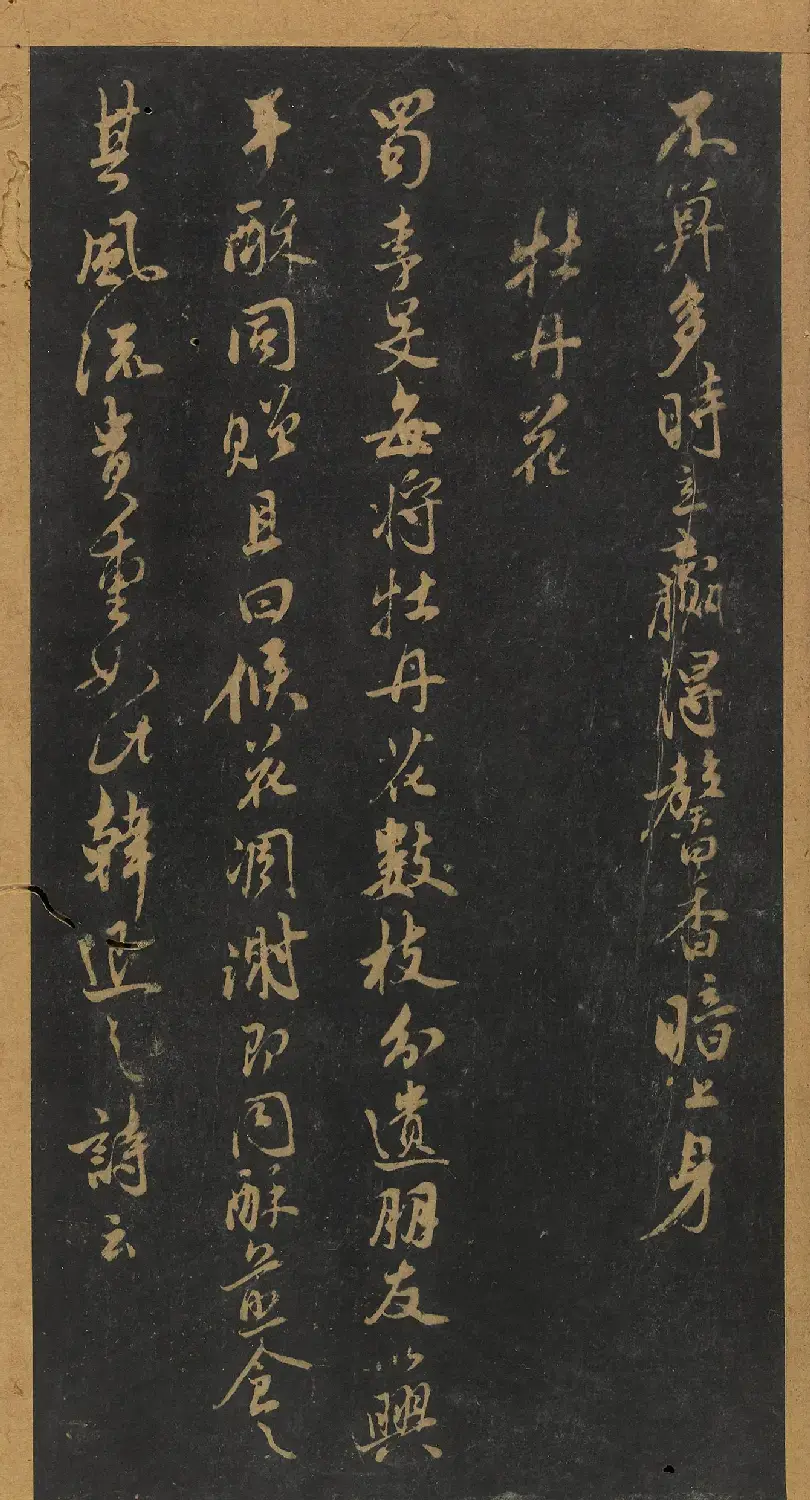 不算多時立贏得馨香暗上身
牡丹花
蜀李昊每將牡丹花數枝分遺朋友以興
平酥同贈且曰候花凋謝即同酥煎食之
其風流貴重如此韓退之詩云